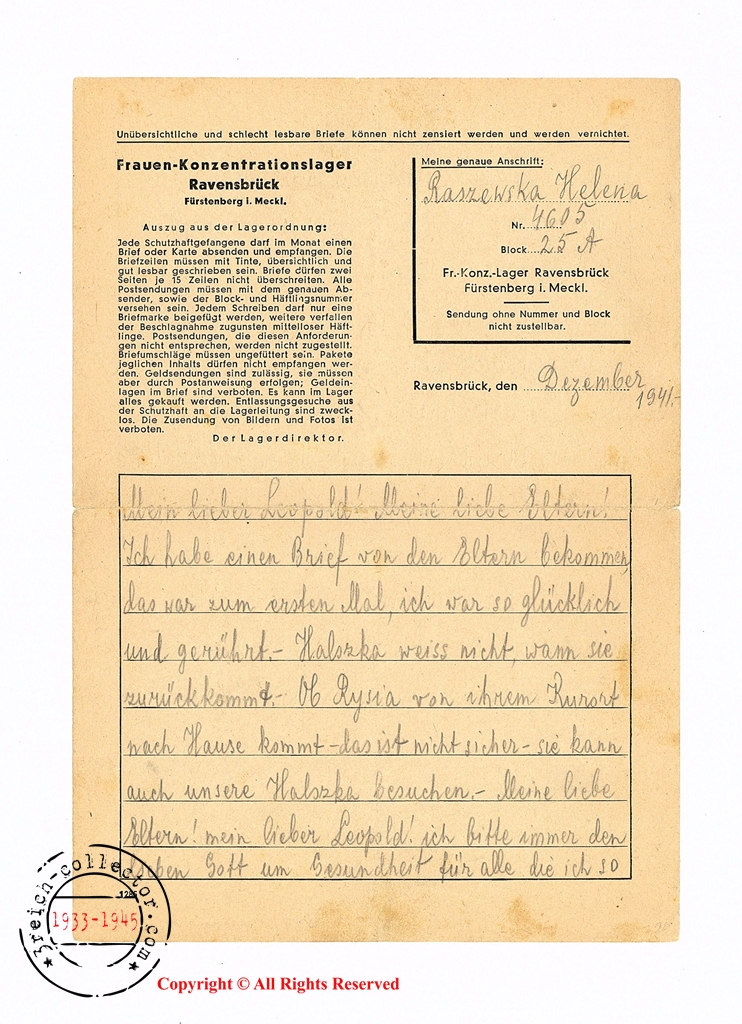 Unübersichtliche und schlecht lesbare Briefe können nicht zensiert werden und werden vernichtet.
Frauen-Konzentrationslager
Ravensbrück
Fürstenberg i. Meckl.
Auszug aus der Lagerordnung:
Jede Schutzhaftgefangene darf im Monat einen
Brief oder Karte absenden und empfangen. Die
Briefzeilen müssen mit Tinte, übersichtlich und
gut lesbar geschrieben sein. Briefe dürfen zwei
Seiten je 15 Zeilen nicht überschreiten. Alle
Postsendungen müssen mit dem genauen Ab-
sender, sowie der Block- und Häftlingsnummer
versehen sein. Jedem Schreiben darf nur eine
Briefmarke beigefügt werden, weitere verfallen
der Beschlagnahme zugunsten mittelloser Häft-
linge. Postsendungen, die diesen Anforderun-
gen nicht entsprechen, werden nicht zugestellt.
Briefumschläge müssen ungefüttert sein. Pakete
jeglichen Inhalts dürfen nicht empfangen wer-
den. Geldsendungen sind zulässig, sie müssen
aber durch Postanweisung erfolgen; Geldein-
lagen im Brief sind verboten. Es kann im Lager
alles gekauft werden. Entlassungsgesuche aus
der Schutzhaft an die Lagerleitung sind zweck-
los. Die Zusendung von Bildern und Fotos ist
verboten.
Der Lagerdirektor.
Meine genaue Anschrift:
Raszewska Helena
Nr. 4605
Block 25 A
Fr.-Konz.-Lager Ravensbrück
Fürstenberg i. Meckl.
Sendung ohne Nummer und Block
nicht zustellbar.
Ravensbrück, den Dezember
1941.-
Mein lieber Leopold! Meine liebe Eltern!
Ich habe einen Brief von den Eltern bekommen,
das war zum ersten Mal, ich war so glücklich
und gerührt.- Halszka weiss nicht, wann sie
zurückkommt.- Ob Rysia von ihrem Kurort
nach Hause kommt - das ist nicht sicher - sie kann
auch unsere Halszka besuchen.- Meine liebe
Eltern! mein lieber Leopold! ich bitte immer den
lieben Gott um Gesundheit für alle die ich so
3reich-collector.com
1933-1945
Copyright © All Rights Reserved